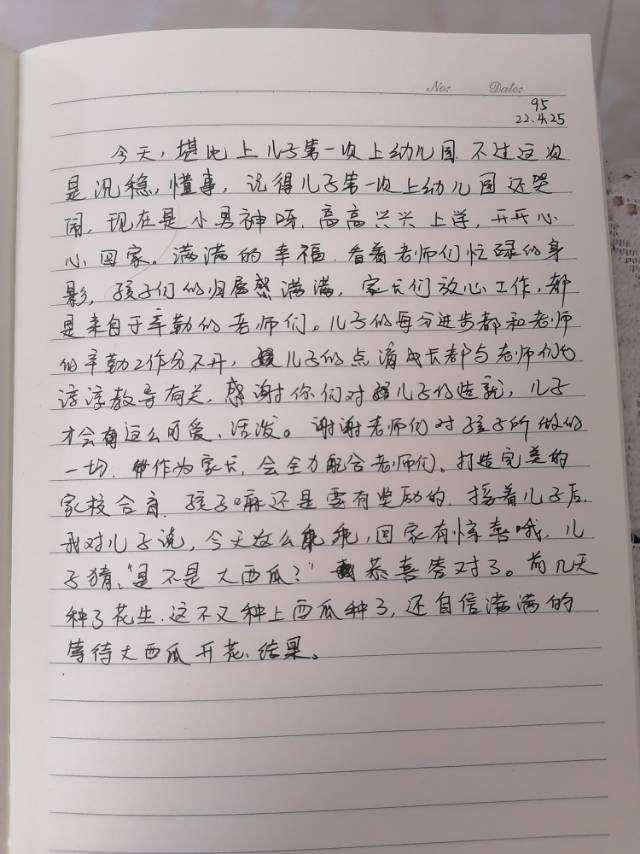 No: Date:
95
22.4.25
今天，堪比上儿子第一次上幼儿园.不过这次
是沉稳，懂事，记得儿子第一次上幼儿园还哭
闹，现在是小男神呀.高高兴兴上学，开开心
心回家。满满的幸福.看着老师们忙碌的身
影，孩子们的归属感满满，家长们放心工作，都
是来自于辛勤的老师们。儿子的每分进步都和老师
的辛勤工作分不开，儿子的点滴成长都与老师们的
谆谆教导有关.感谢你们对儿子的造就，儿子
才会有这么可爱、活泼。谢谢老师们对孩子所做的
一切.作为家长，会全力配合老师们、打造完美的
家校合育.孩子嘛还是要有奖励的.接着儿子后.
我对儿子说，今天这么乖，回家有惊喜哦，儿
子猜，“是不是大西瓜？”恭喜答对了。前几天
种了花生.这不又种上西瓜种了，还自信满满的
等待大西瓜开花、结果。